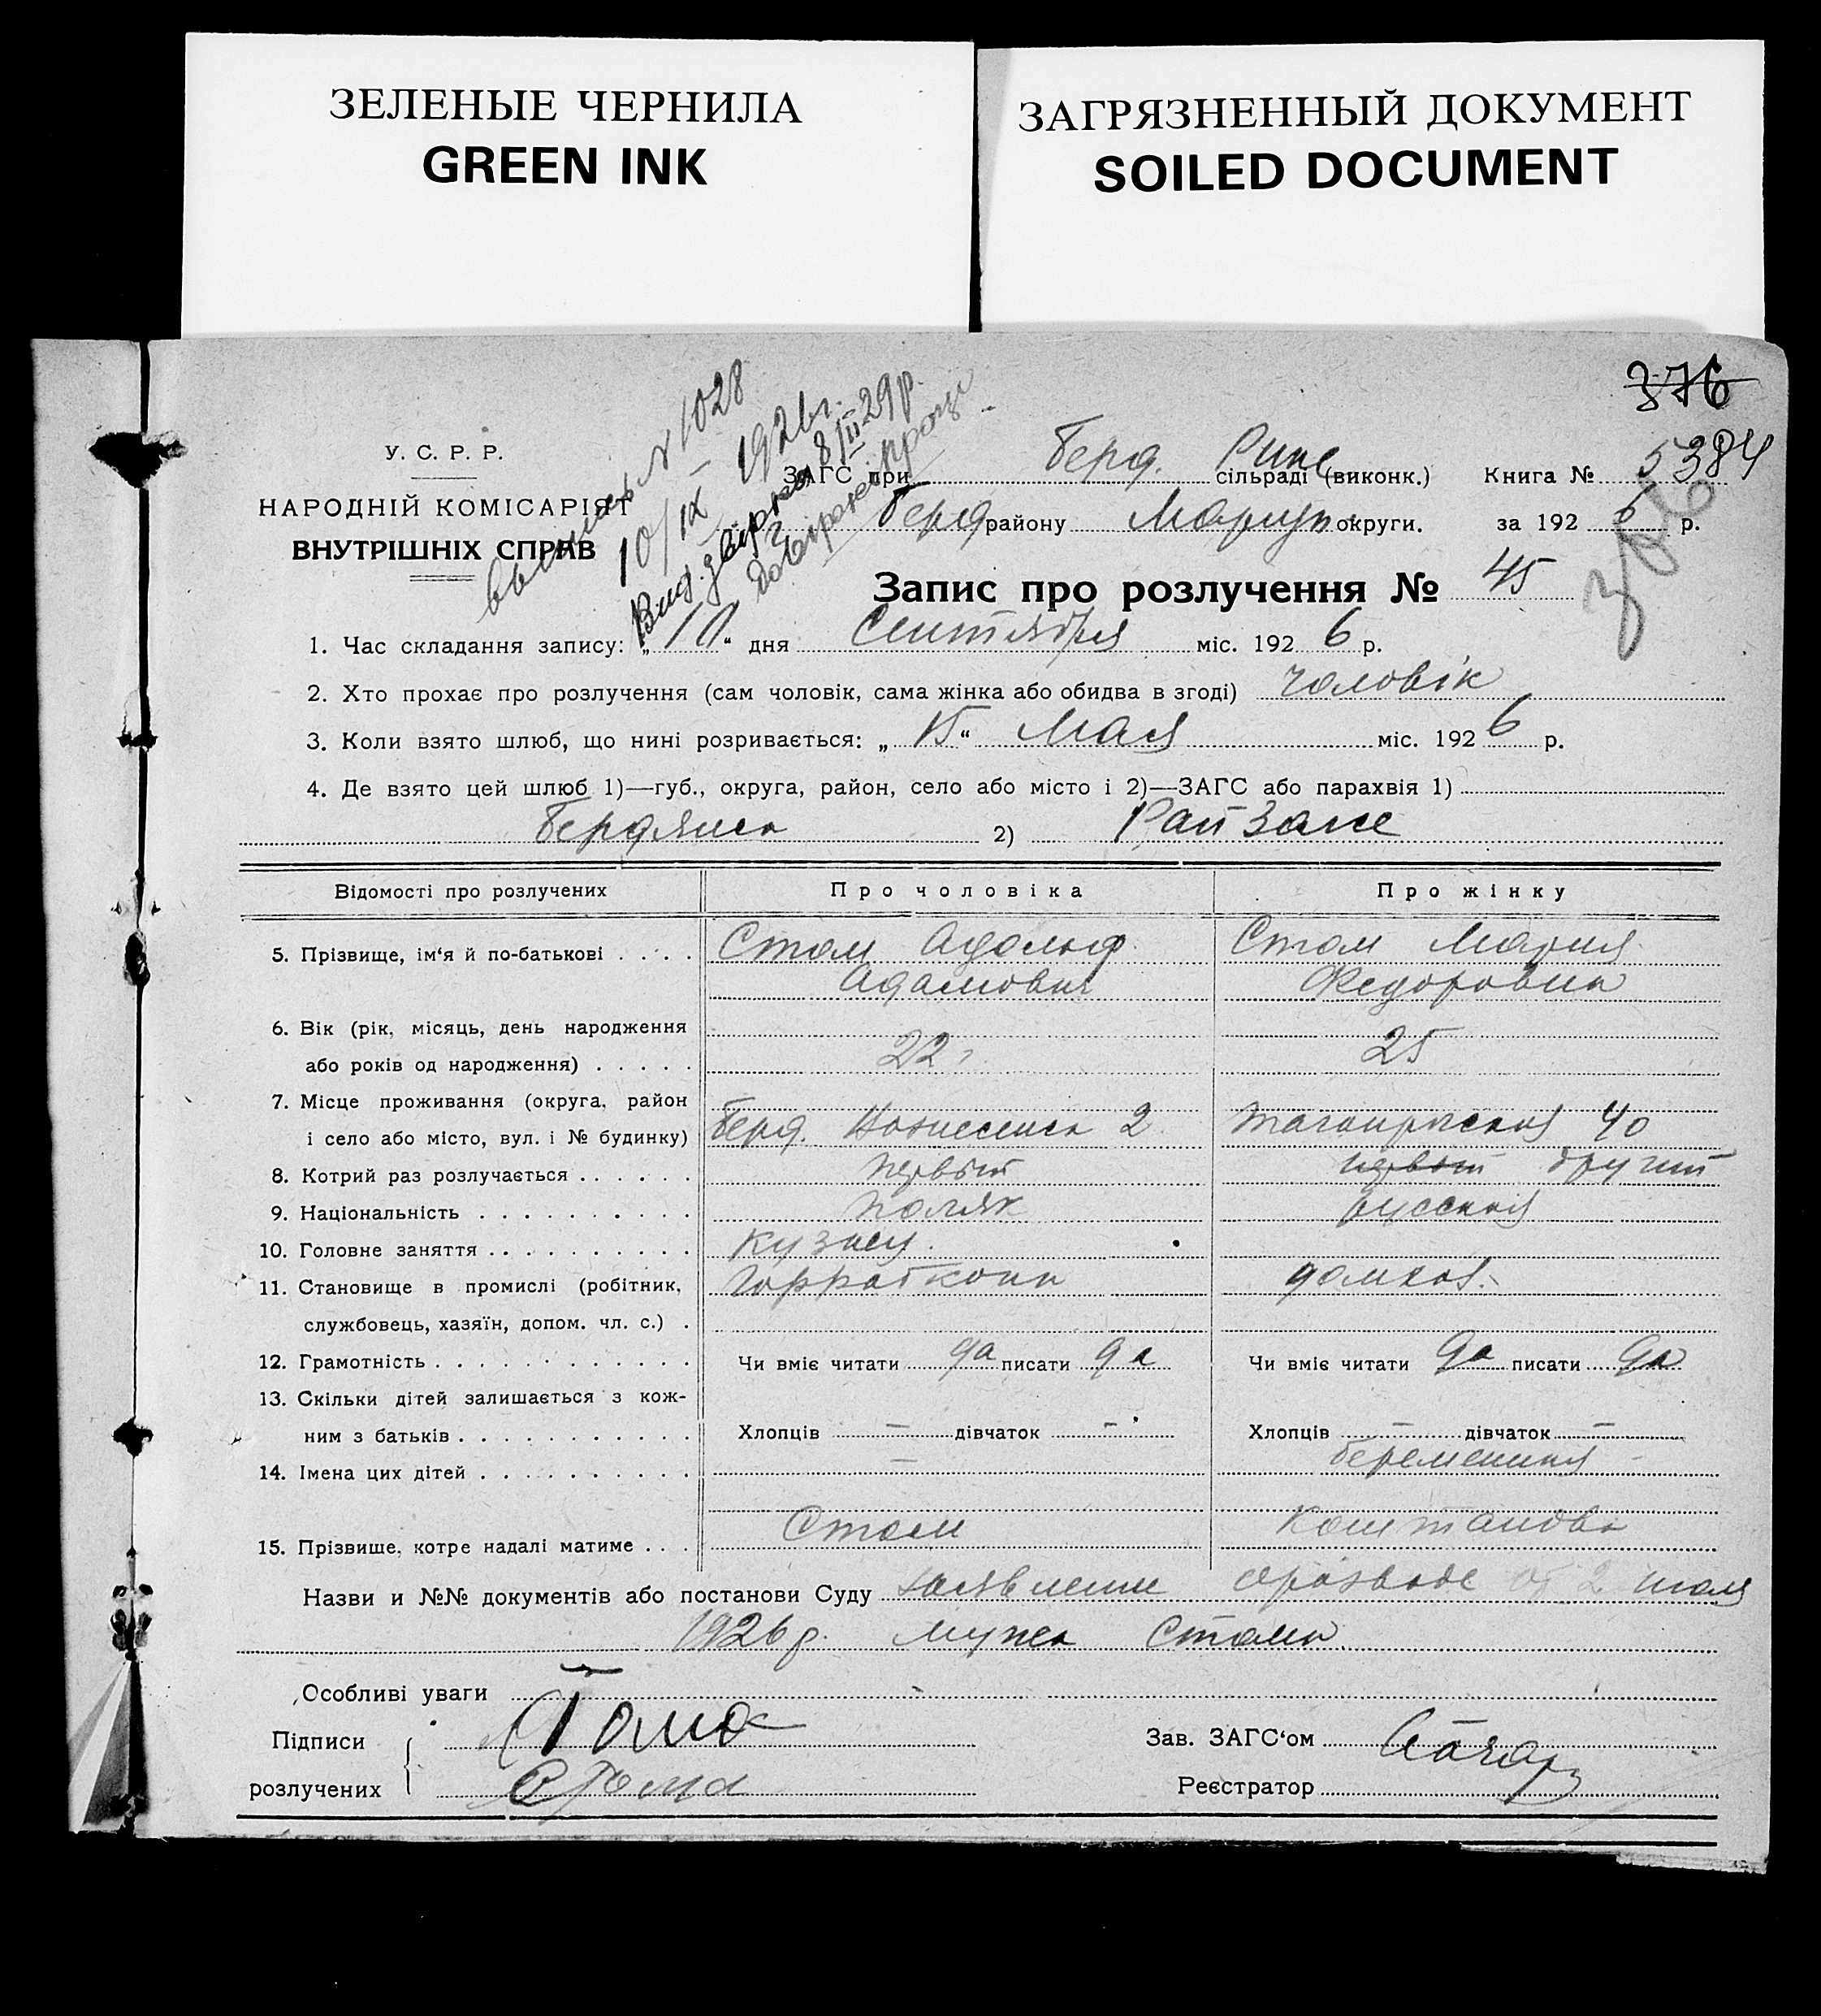 ЗЕЛЕНЫЕ ЧЕРНИЛА
GREEN INK
ЗАГРЯЗНЕННЫЙ ДОКУМЕНТ
SOILED DOCUMENT
376
У. С. Р. Р.
НАРОДНІЙ КОМІСАРІЯТ
ВНУТРІШНІХ СПРАВ
№ 1028
10/IX 1926 г.
8/II 29 р.
ЗАГС при Берд. Рике сільраді (виконк.) Книга № 5384
Берд району Мариуп. округи. за 192 6 р.
Запис про розлучення № 45
1. Час складання запису: „ 10 “ дня Сентября міс. 192 6 р.
2. Хто прохає про розлучення (сам чоловік, сама жінка або обидва в згоді) чоловік
3. Коли взято шлюб, що нині розривається: „ 15 “ Мая міс. 192 6 р.
4. Де взято цей шлюб 1)—губ., округа, район, село або місто і 2)—ЗАГС або парахвія 1)
Бердянск 2) Рай Загсе
Відомості про розлучених Про чоловіка Про жінку
5. Прізвище, ім‘я й по-батькові . . . . Стом Адольф Стом Мария
Адамович Федоровна
6. Вік (рік, місяць, день народження
або років од народження) . . . . . 22 25
7. Місце проживання (округа, район
і село або місто, вул. і № будинку) Берд. 2 40
8. Котрий раз розлучається . . . . . . первый первый другий
9. Національність . . . . . . . . . . поляк русская
10. Головне заняття . . . . . . . . . .
11. Становище в промислі (робітник, домхоз.
службовець, хазяїн, допом. чл. с.) .
12. Грамотність . . . . . . . . . . . . Чи вміє читати да писати да Чи вміє читати да писати да
13. Скільки дітей залишається з кож-
ним з батьків . . . . . . . . . . . Хлопців — дівчаток — Хлопців — дівчаток —
14. Імена цих дітей . . . . . . . . . . — беременная —
15. Прізвише, котре надалі матиме . . . Стом
Назви и №№ документів або постанови Суду заявление о разводе от 2 июля
1926 р. мужа Стома
Особливі уваги
Підписи
розлучених
Зав. ЗАГС‘ом
Реєстратор